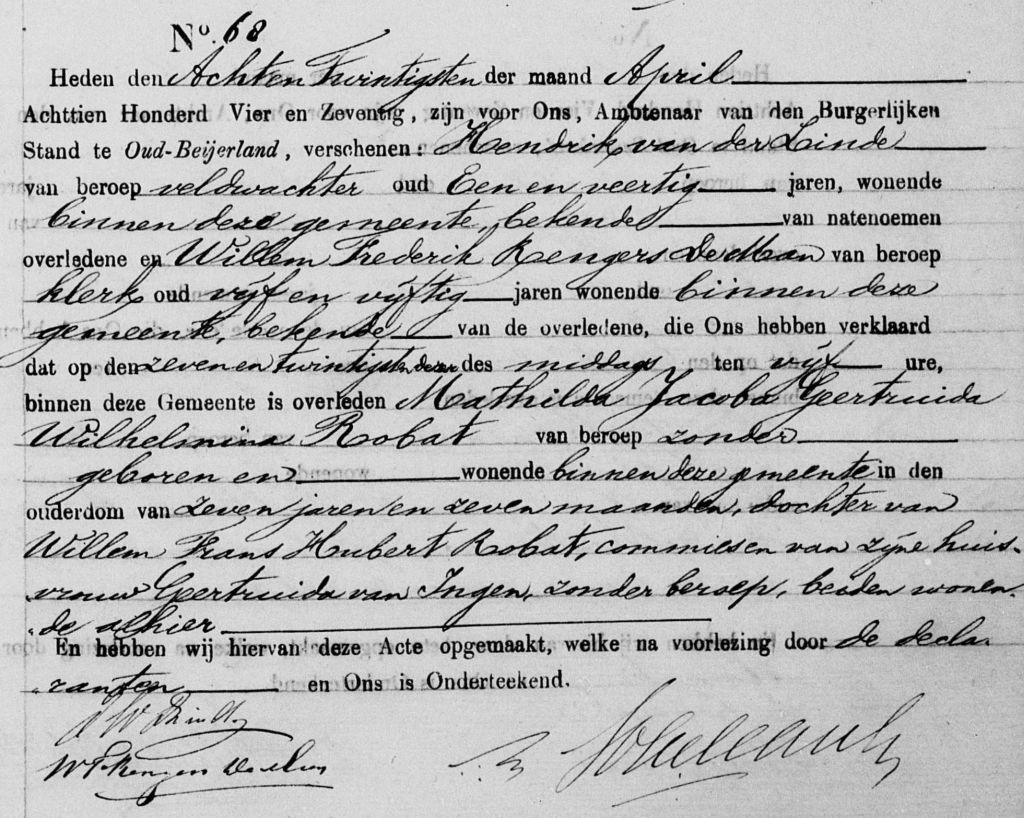 No. 68
Heden den Achten Twintigsten der maand April
Achttien Honderd Vier en Zeventig, zijn voor Ons, Ambtenaar van den Burgerlijken
Stand te Oud-Beijerland, verschenen: Hendrik van der Linde
van beroep veldwachter oud Een en veertig jaren, wonende
binnen deze gemeente, bekende van natenoemen
overledene en Willem Frederik Rengers DeMan van beroep
klerk oud vijf en vijftig jaren wonende binnen deze
gemeente, bekende van de overledene, die Ons hebben verklaard
dat op den zeven en twintigsten dezer des middags ten vijf ure,
binnen deze Gemeente is overleden Mathilda Jacoba Geertruida
Wilhelmina Robat van beroep zonder
geboren en wonende binnen deze gemeente in den
ouderdom van zeven jaren en zeven maanden, dochter van
Willem Frans Hubert Robat, commies en van zijne huis-
vrouw Geertruida van Ingen, zonder beroep, beiden wonen-
de alhier
En hebben wij hiervan deze Acte opgemaakt, welke na voorlezing door de decla-
ranten en Ons is Onderteekend.